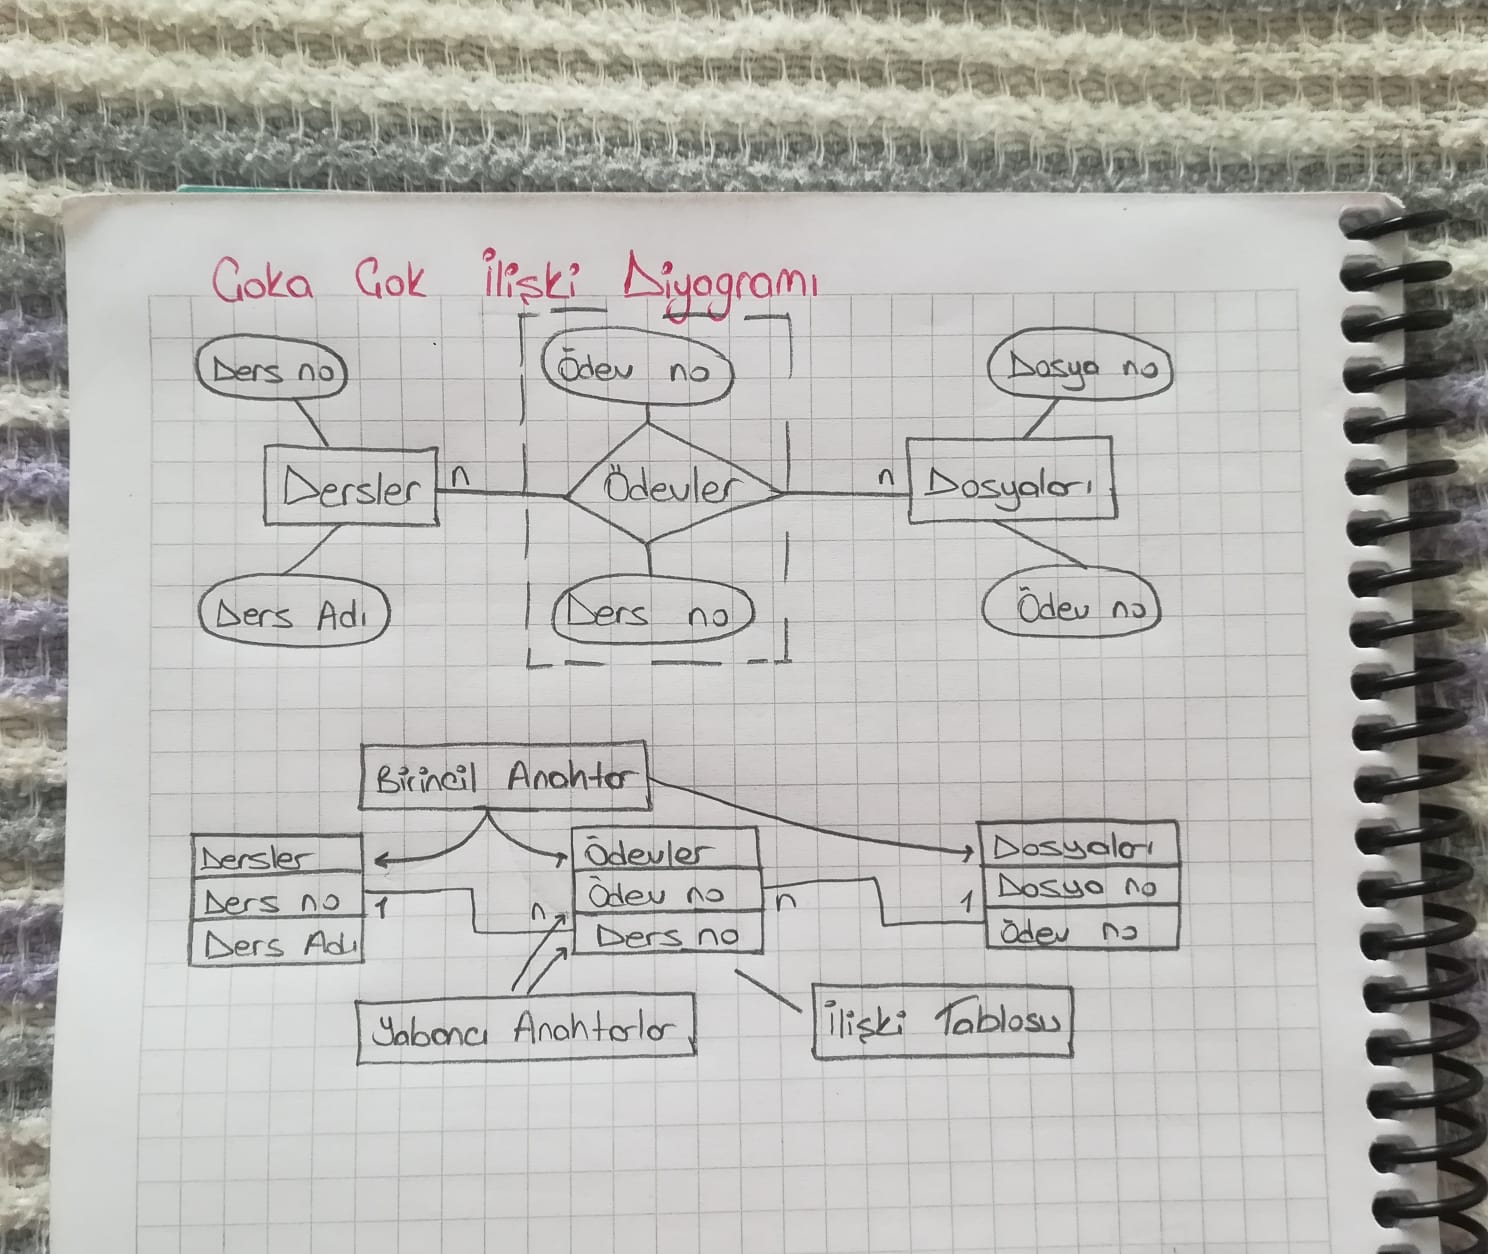 Çoka Çok İlişki Diyagramı
Ders no
Ödev no
Dosya no
Dersler
n
Ödevler
n
Dosyaları
Ders Adı
Ders no
Ödev no
Birincil Anahtar
Dersler
Ödevler
Dosyaları
Ders no
1
Ödev no
n
Dosya no
1
Ders Adı
n
Ders no
Ödev no
Yabancı Anahtarlar
İlişki Tablosu